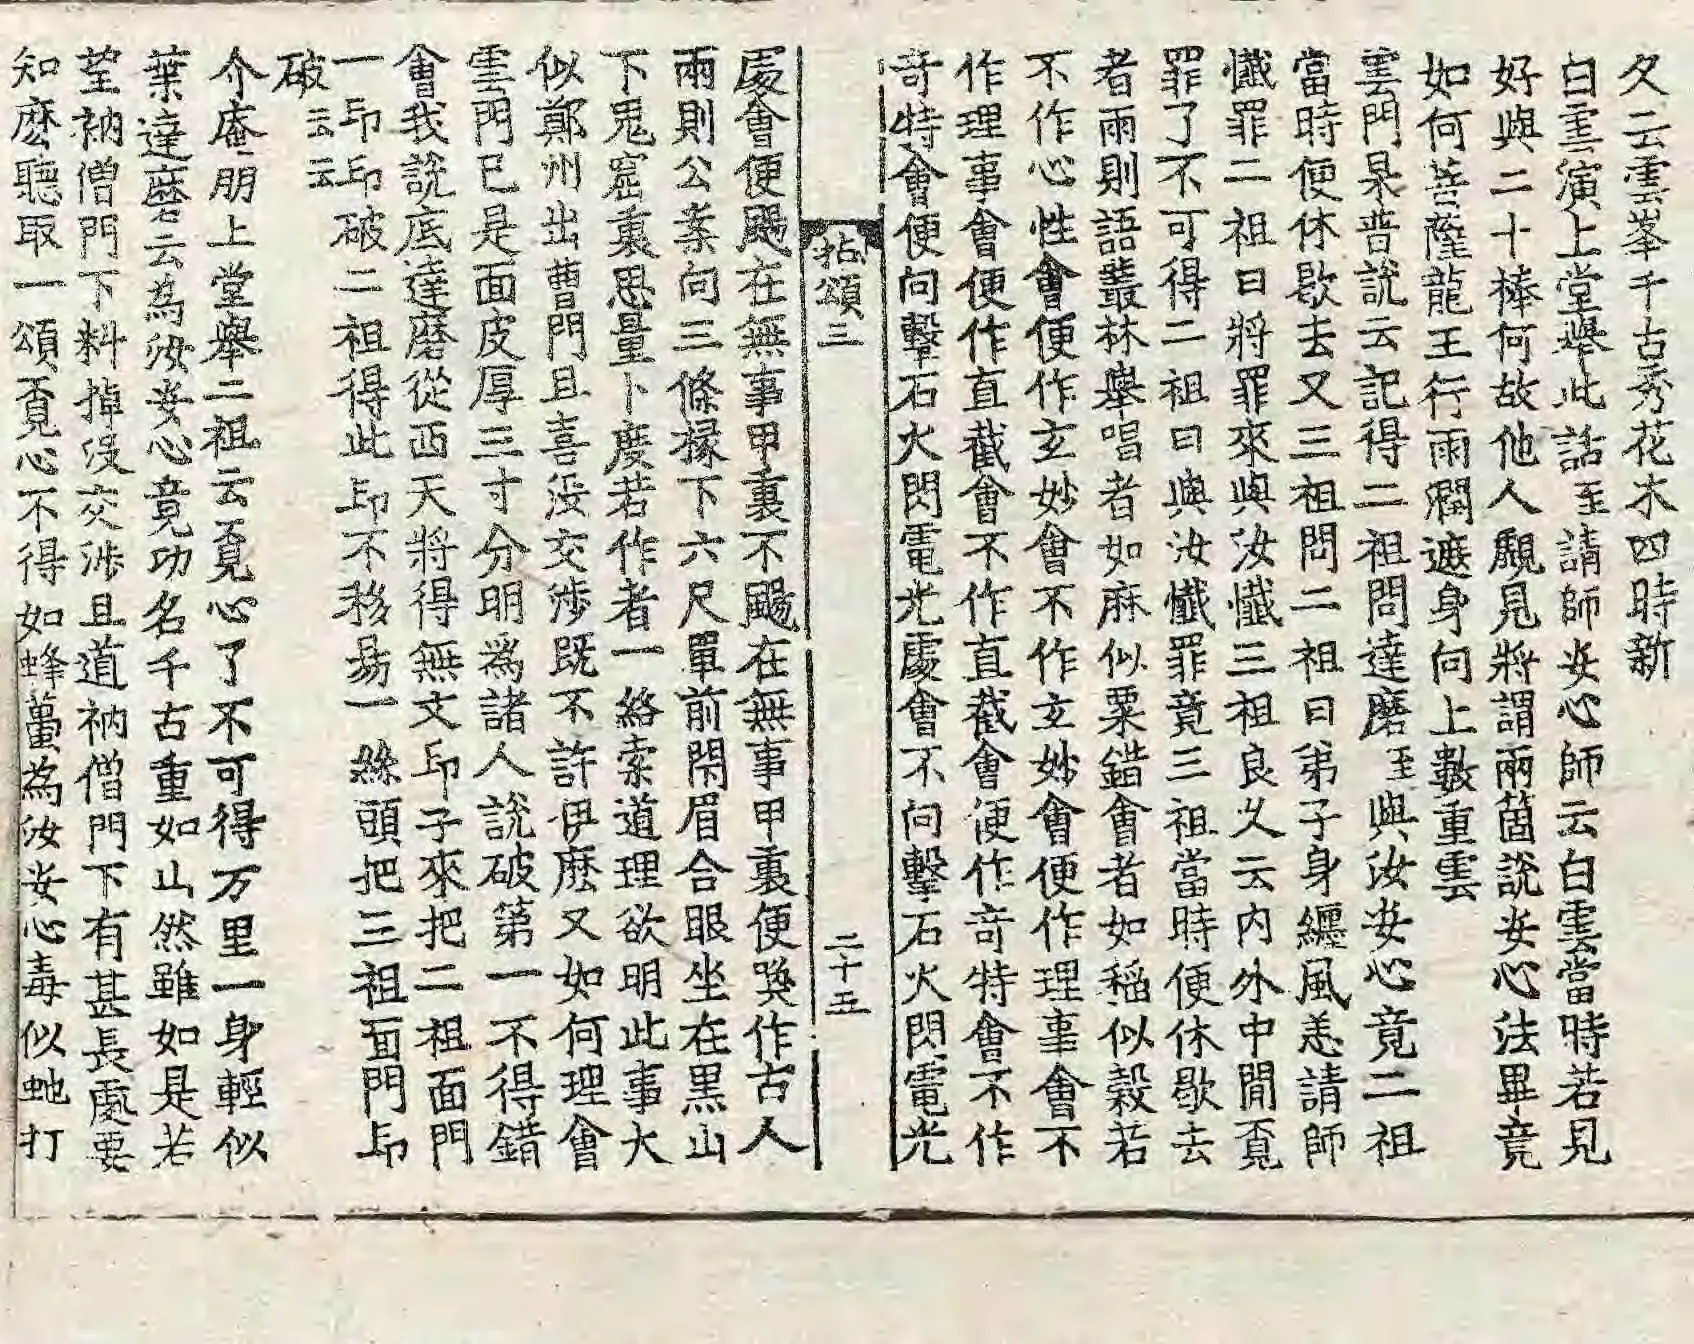 久云雲峯千古秀花木四時新
白雲演上堂擧此話至請師安心師云白雲當時若見
好與二十棒何故他人覰見將謂兩箇說安心法畢竟
如何菩薩龍王行雨潤遮身向上數重雲
雲門杲普說云記得二祖問達磨至與汝安心竟二祖
當時便休歇去又三祖問二祖曰弟子身纏風恙請師
懺罪二祖曰將罪來與汝懺三祖良久云內外中間覓
罪了不可得二祖曰與汝懺罪竟三祖當時便休歇去
者兩則語叢林擧唱者如麻似粟錯會者如稻似穀若
不作心性會便作玄妙會不作玄妙會便作理事會不
作理事會便作直截會不作直截會便作竒特會不作
竒特會便向擊石火閃電光處會不向擊石火閃電光
拈頌三 二十五
處會便颺在無事甲裏不颺在無事甲裏便喚作古人
兩則公案向三條椽下六尺單前閇眉合眼坐在黑山
下鬼窟裏思量卜度若作者一絡索道理欲明此事大
似鄭州出曹門且喜沒交涉旣不許伊麽又如何理會
雲門已是面皮厚三寸分明爲諸人說破第一不得錯
會我說底達磨從西天將得無文印子來把二祖面門
一印印破二祖得此印不移易一絲頭把三祖面門印
破云云
介庵朋上堂擧二祖云覓心了不可得万里一身輕似
葉達磨云為汝安心竟功名千古重如山然雖如是若
望衲僧門下料掉沒交涉且道衲僧門下有甚長處要
知麽聽取一頌覓心不得如蜂蠆為汝安心毒似虵打